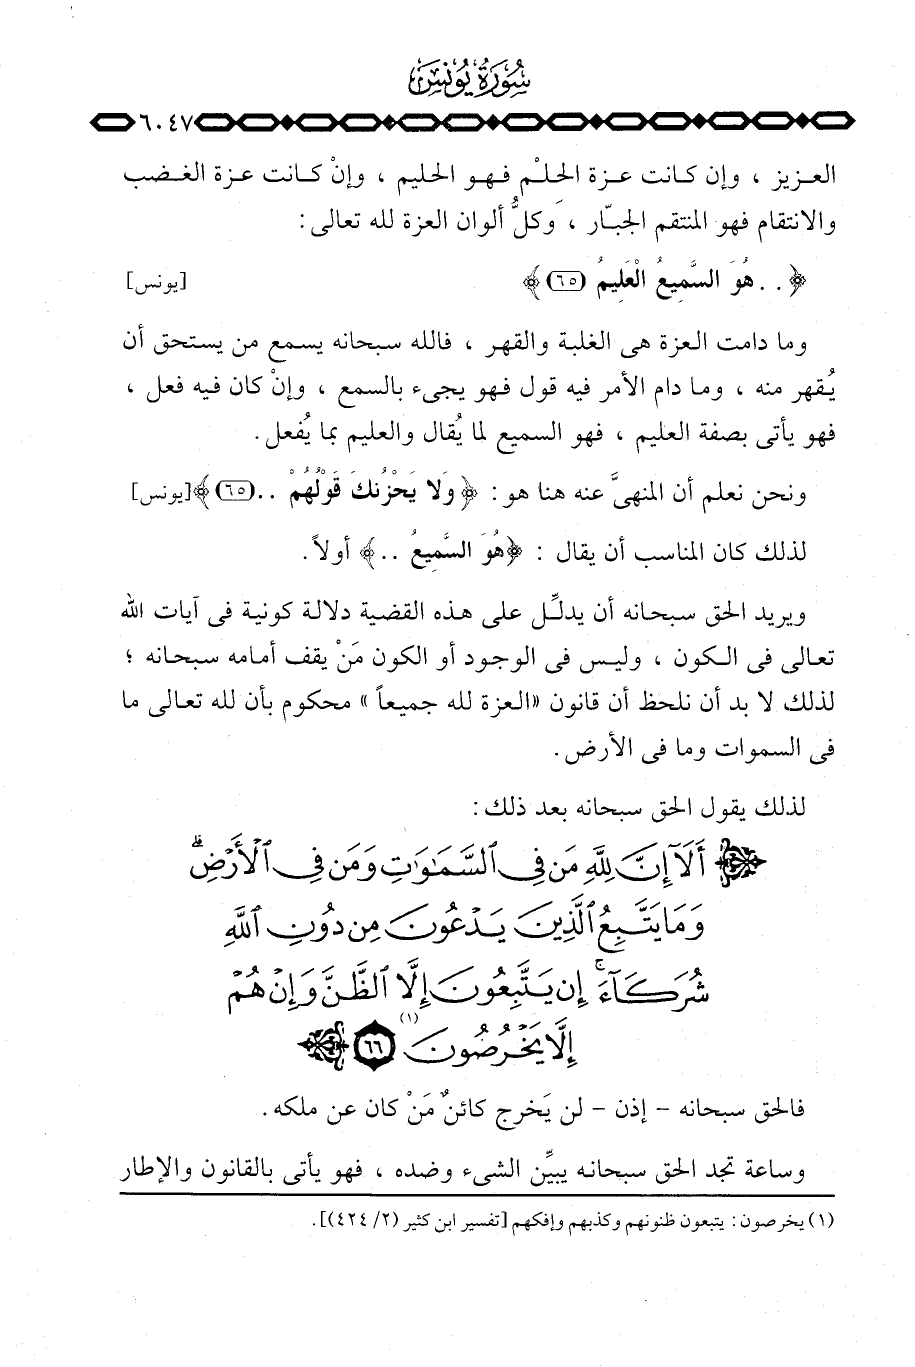 سُورَةُ يُونُسَ
٦٠٤٧
العزيز ، وإن كانت عزة الحلْم فهو الحليم ، وإنْ كانت عزة الغضب
والانتقام فهو المنتقم الجبّار ، وكلُّ ألوان العزة لله تعالى :
﴿ .. هُوَ السَّمِيعُ الْعَلِيمُ (٦٥) ﴾ [يونس]
وما دامت العزة هى الغلبة والقهر ، فالله سبحانه يسمع من يستحق أن
يُقهر منه ، وما دام الأمر فيه قول فهو يجىء بالسمع ، وإنْ كان فيه فعل ،
فهو يأتى بصفة العليم ، فهو السميع لما يُقال والعليم بما يُفعل .
ونحن نعلم أن المنهىَّ عنه هنا هو : ﴿ وَلا يَحْزُنكَ قَوْلُهُمْ .. (٦٥) ﴾ [يونس]
لذلك كان المناسب أن يقال : ﴿ هُوَ السَّمِيعُ .. ﴾ أولاً .
ويريد الحق سبحانه أن يدلِّل على هذه القضية دلالة كونية فى آيات الله
تعالى فى الكون ، وليس فى الوجود أو الكون مَنْ يقف أمامه سبحانه ؛
لذلك لا بد أن نلحظ أن قانون «العزة لله جميعاً» محكوم بأن لله تعالى ما
فى السموات وما فى الأرض .
لذلك يقول الحق سبحانه بعد ذلك :
﴿ أَلَآ إِنَّ لِلَّهِ مَن فِى ٱلسَّمَٰوَٰتِ وَمَن فِى ٱلْأَرْضِ ۗ
وَمَا يَتَّبِعُ ٱلَّذِينَ يَدْعُونَ مِن دُونِ ٱللَّهِ
شُرَكَآءَ ۚ إِن يَتَّبِعُونَ إِلَّا ٱلظَّنَّ وَإِنْ هُمْ
إِلَّا يَخْرُصُونَ (١) ٦٦ ﴾
فالحق سبحانه - إذن - لن يَخرج كائنٌ مَنْ كان عن ملكه .
وساعة تجد الحق سبحانه يبيِّن الشىء وضده ، فهو يأتى بالقانون والإطار
(١) يخرصون : يتبعون ظنونهم وكذبهم وإفكهم [تفسير ابن كثير (٢/ ٤٢٤)] .